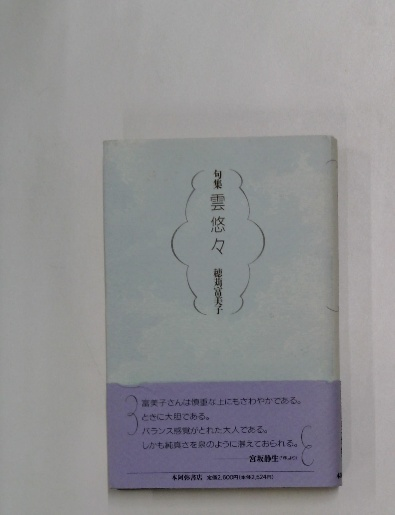 句集
雲悠々
穂苅富美子
富美子さんは慎重な上にもさわやかである。
ときに大胆である。
バランス感覚がとれた大人である。
しかも純真さを泉のように湛えておられる。
――宮坂静生
本阿弥書店 定価2,600円(本体2,524円)